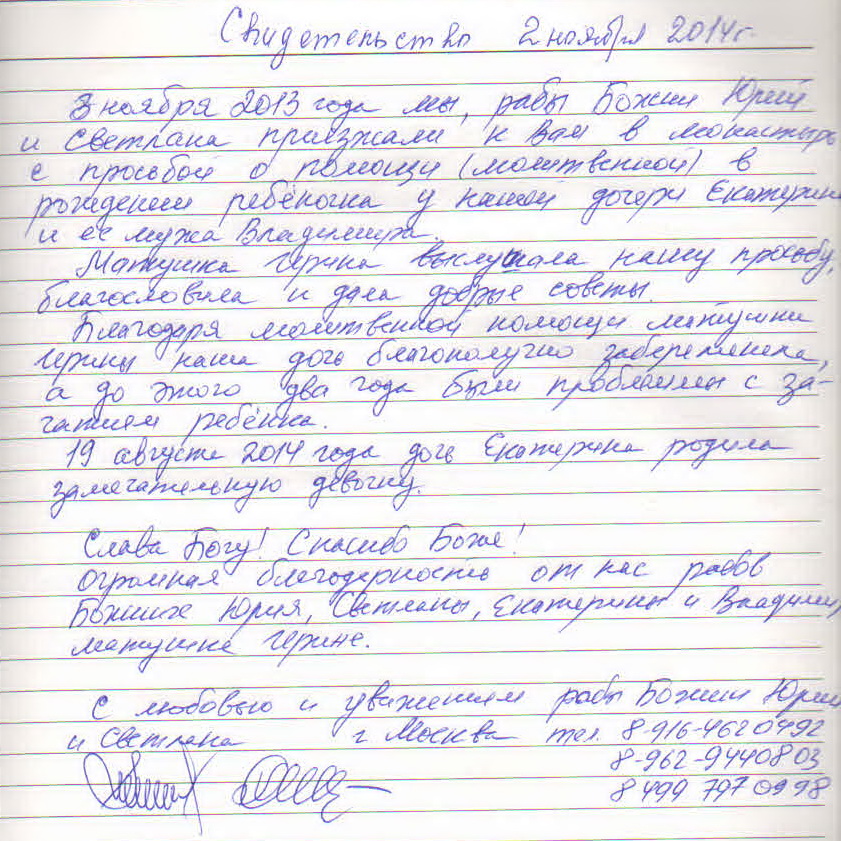 Свидетельство 2 ноября 2014 г.
3 ноября 2013 года мы, рабы Божии Юрий
и Светлана приезжали к Вам в монастырь
с просьбой о помощи (молитвенной) в
рождении ребёночка у нашей дочери Екатерины
и её мужа Владимира.
Матушка Иерина выслушала нашу просьбу,
благословила и дала добрые советы.
Благодаря молитвенной помощи матушки
Иерины наша дочь благополучно забеременела,
а до этого два года были проблемы с за-
чатием ребёнка.
19 августа 2014 года дочь Екатерина родила
замечательную девочку.
Слава Богу! Спасибо Боже!
Огромная благодарность от нас рабов
Божиих Юрия, Светланы, Екатерины и Владимир
матушке Иерине.
С любовью и уважением рабы Божии Юрий
и Светлана г Москва тел. 8-916-462 0492
8-962-9440803
8 499 797 0998